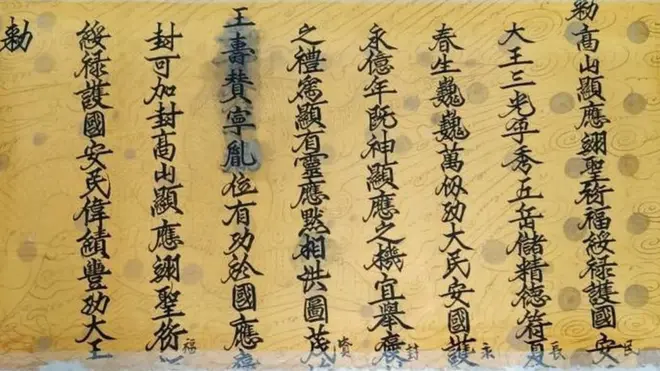 勅高山顯應翊聖衍福綏禄護國安民
大王三光孕秀五岳儲精德符夏長
春生巍巍萬仭功大民安國護
永億年既神顯應之機宜舉褒封
之禮爲顯有靈應默相洪圖茂
王壽賛寧胤位有功於國應
封可加封高山顯應翊聖衍福
綏禄護國安民偉績豐功大王
勅